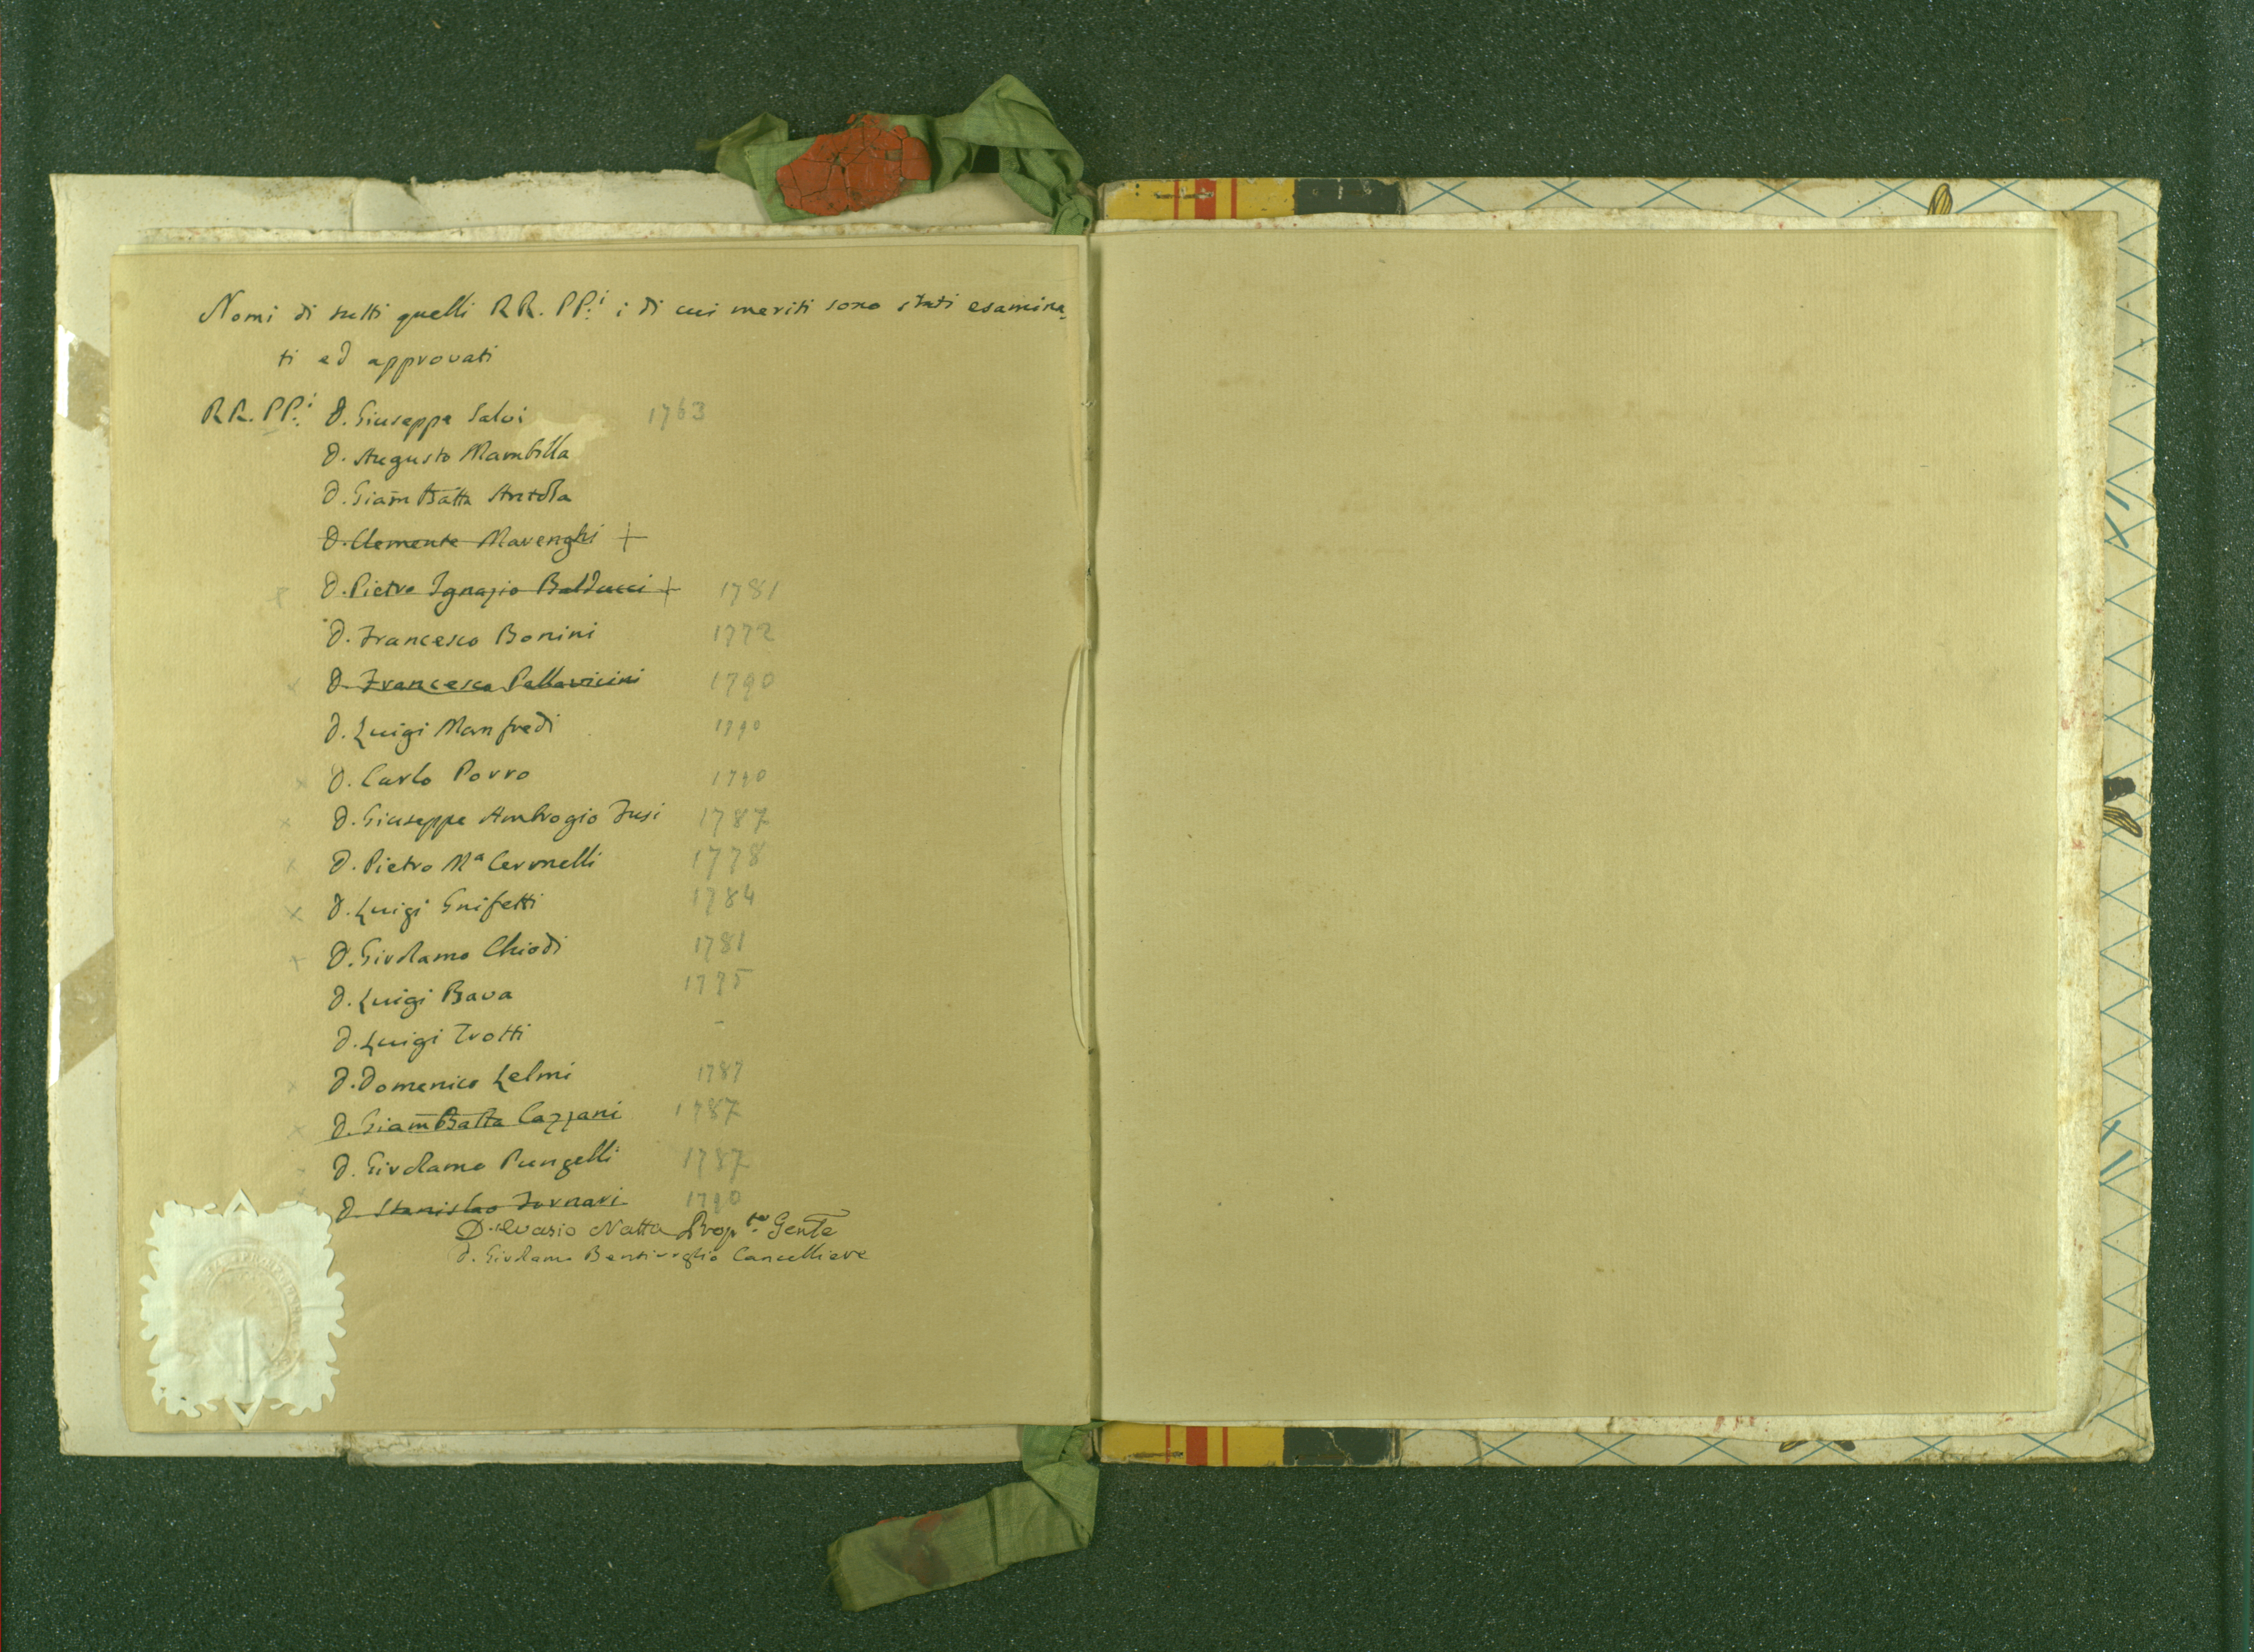 Nomi di tutti quelli RR. PP.i i di cui meriti sono stati esamina_
ti ed approvati
RR. PP.i D. Giuseppe Salvi 1763
D. Augusto Mambilla
D. GiamBatta Antola
D. Clemente Marenghi +
D. Pietro Ignazio Balducci + 1781
D. Francesco Bonini 1772
D. Francesco Pallavicini 1790
D. Luigi Manfredi 1790
D. Carlo Porro 1790
D. Giuseppe Ambrogio Fusi 1787
D. Pietro Ma Cermelli 1778
D. Luigi Gnifetti 1784
D. Girolamo Chiodi 1781
D. Luigi Bava 1775
D. Luigi Trotti
D. Domenico Lelmi 1787
D. GiamBatta Cazzani 1787
D. Girolamo Pungelli 1787
D. Stanislao Furnari 1790
D. Evasio Natta Prop.to Gen.le
D. Girolamo Bentivoglio Cancelliere